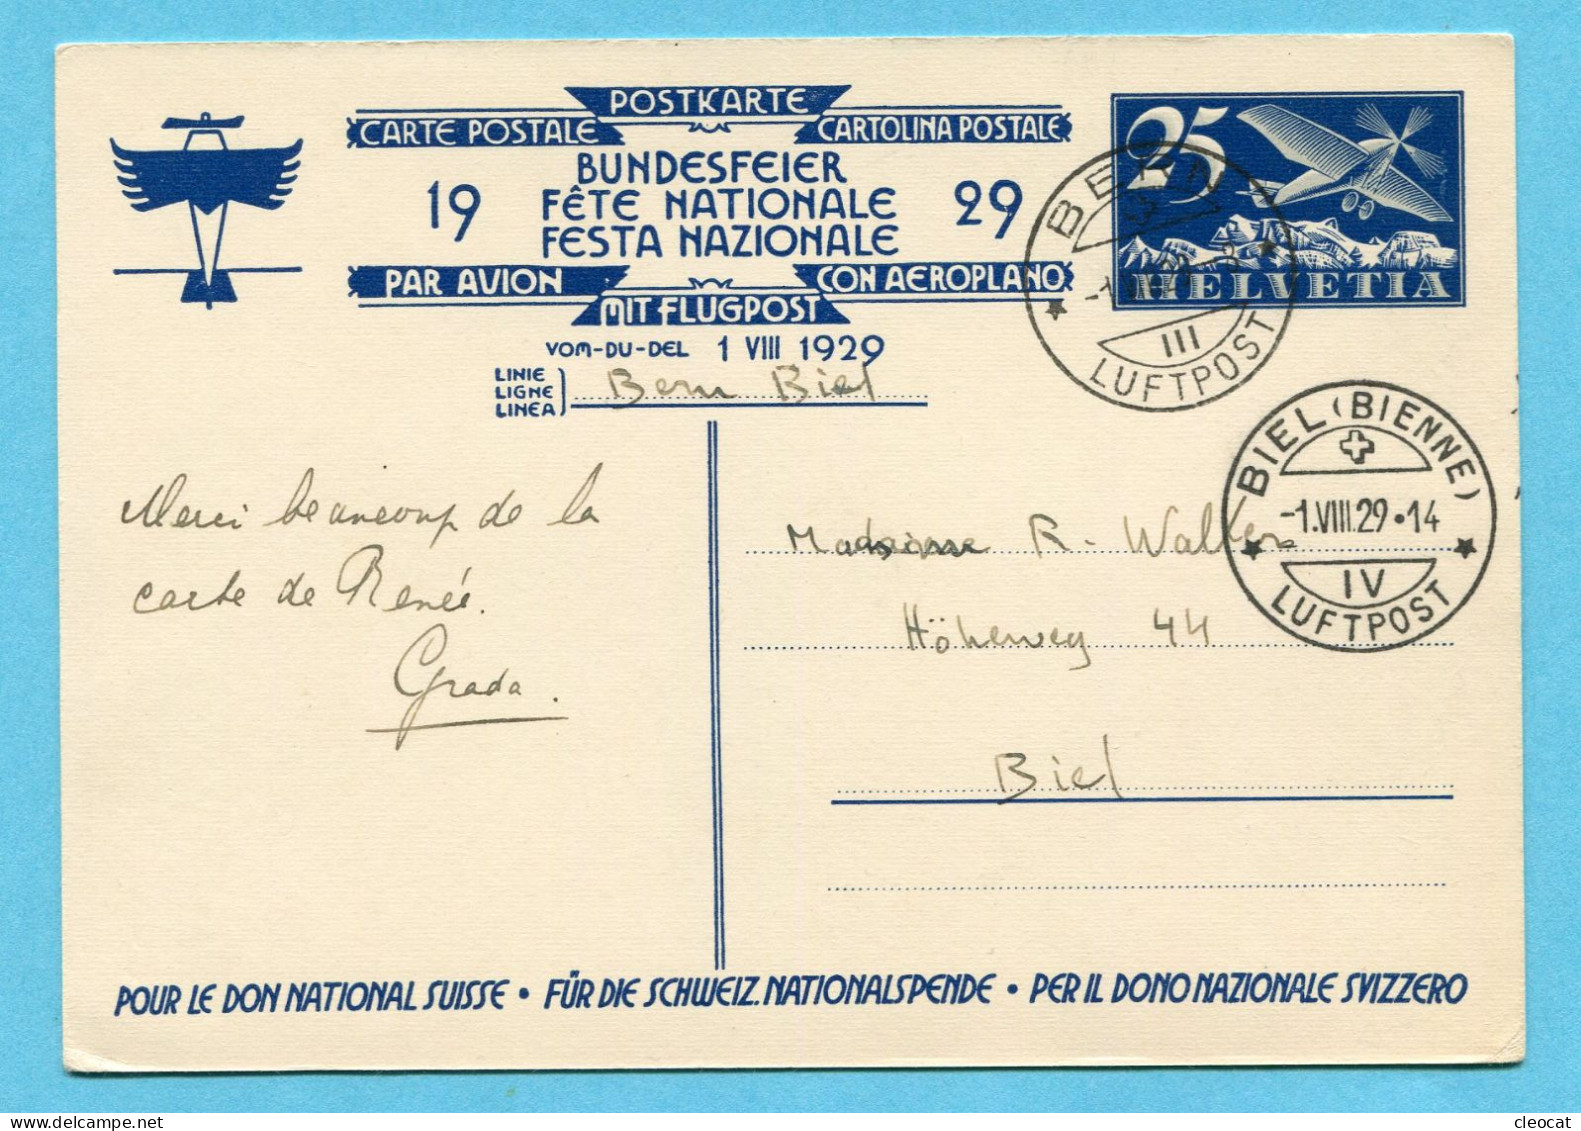 POSTKARTE
CARTE POSTALE CARTOLINA POSTALE
BUNDESFEIER
19 FÊTE NATIONALE 29
FESTA NAZIONALE
PAR AVION CON AEROPLANO
MIT FLUGPOST
VOM-DU-DEL 1 VIII 1929
LINIE
LIGNE
LINEA
Bern Biel
25
HELVETIA
BERN
III
LUFTPOST
BIEL (BIENNE)
-1.VIII.29•14
IV
LUFTPOST
Merci beaucoup de la
carte de Renée.
Grada.
Madame R. Walter
Höheweg 44
Biel
POUR LE DON NATIONAL SUISSE • FÜR DIE SCHWEIZ. NATIONALSPENDE • PER IL DONO NAZIONALE SVIZZERO
cleocat